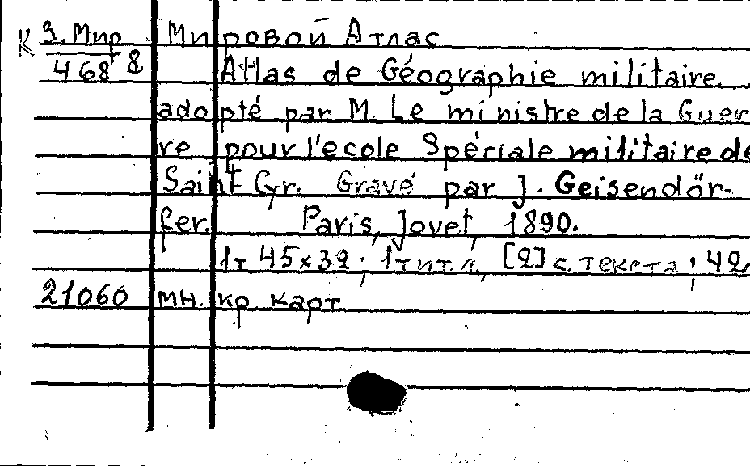 К 3. Мир Мировой Атлас
468 8 Atlas de Géographie militaire
adopté par M. Le ministre de la Guer
re pour l'ecole Spéciale militaire de
Saint Cyr. Gravé par J. Geisendör-
fer. Paris, Jovet, 1890.
1т 45×32; 1 тит. л, [2] с. текста; 42
21060 мн. кр карт